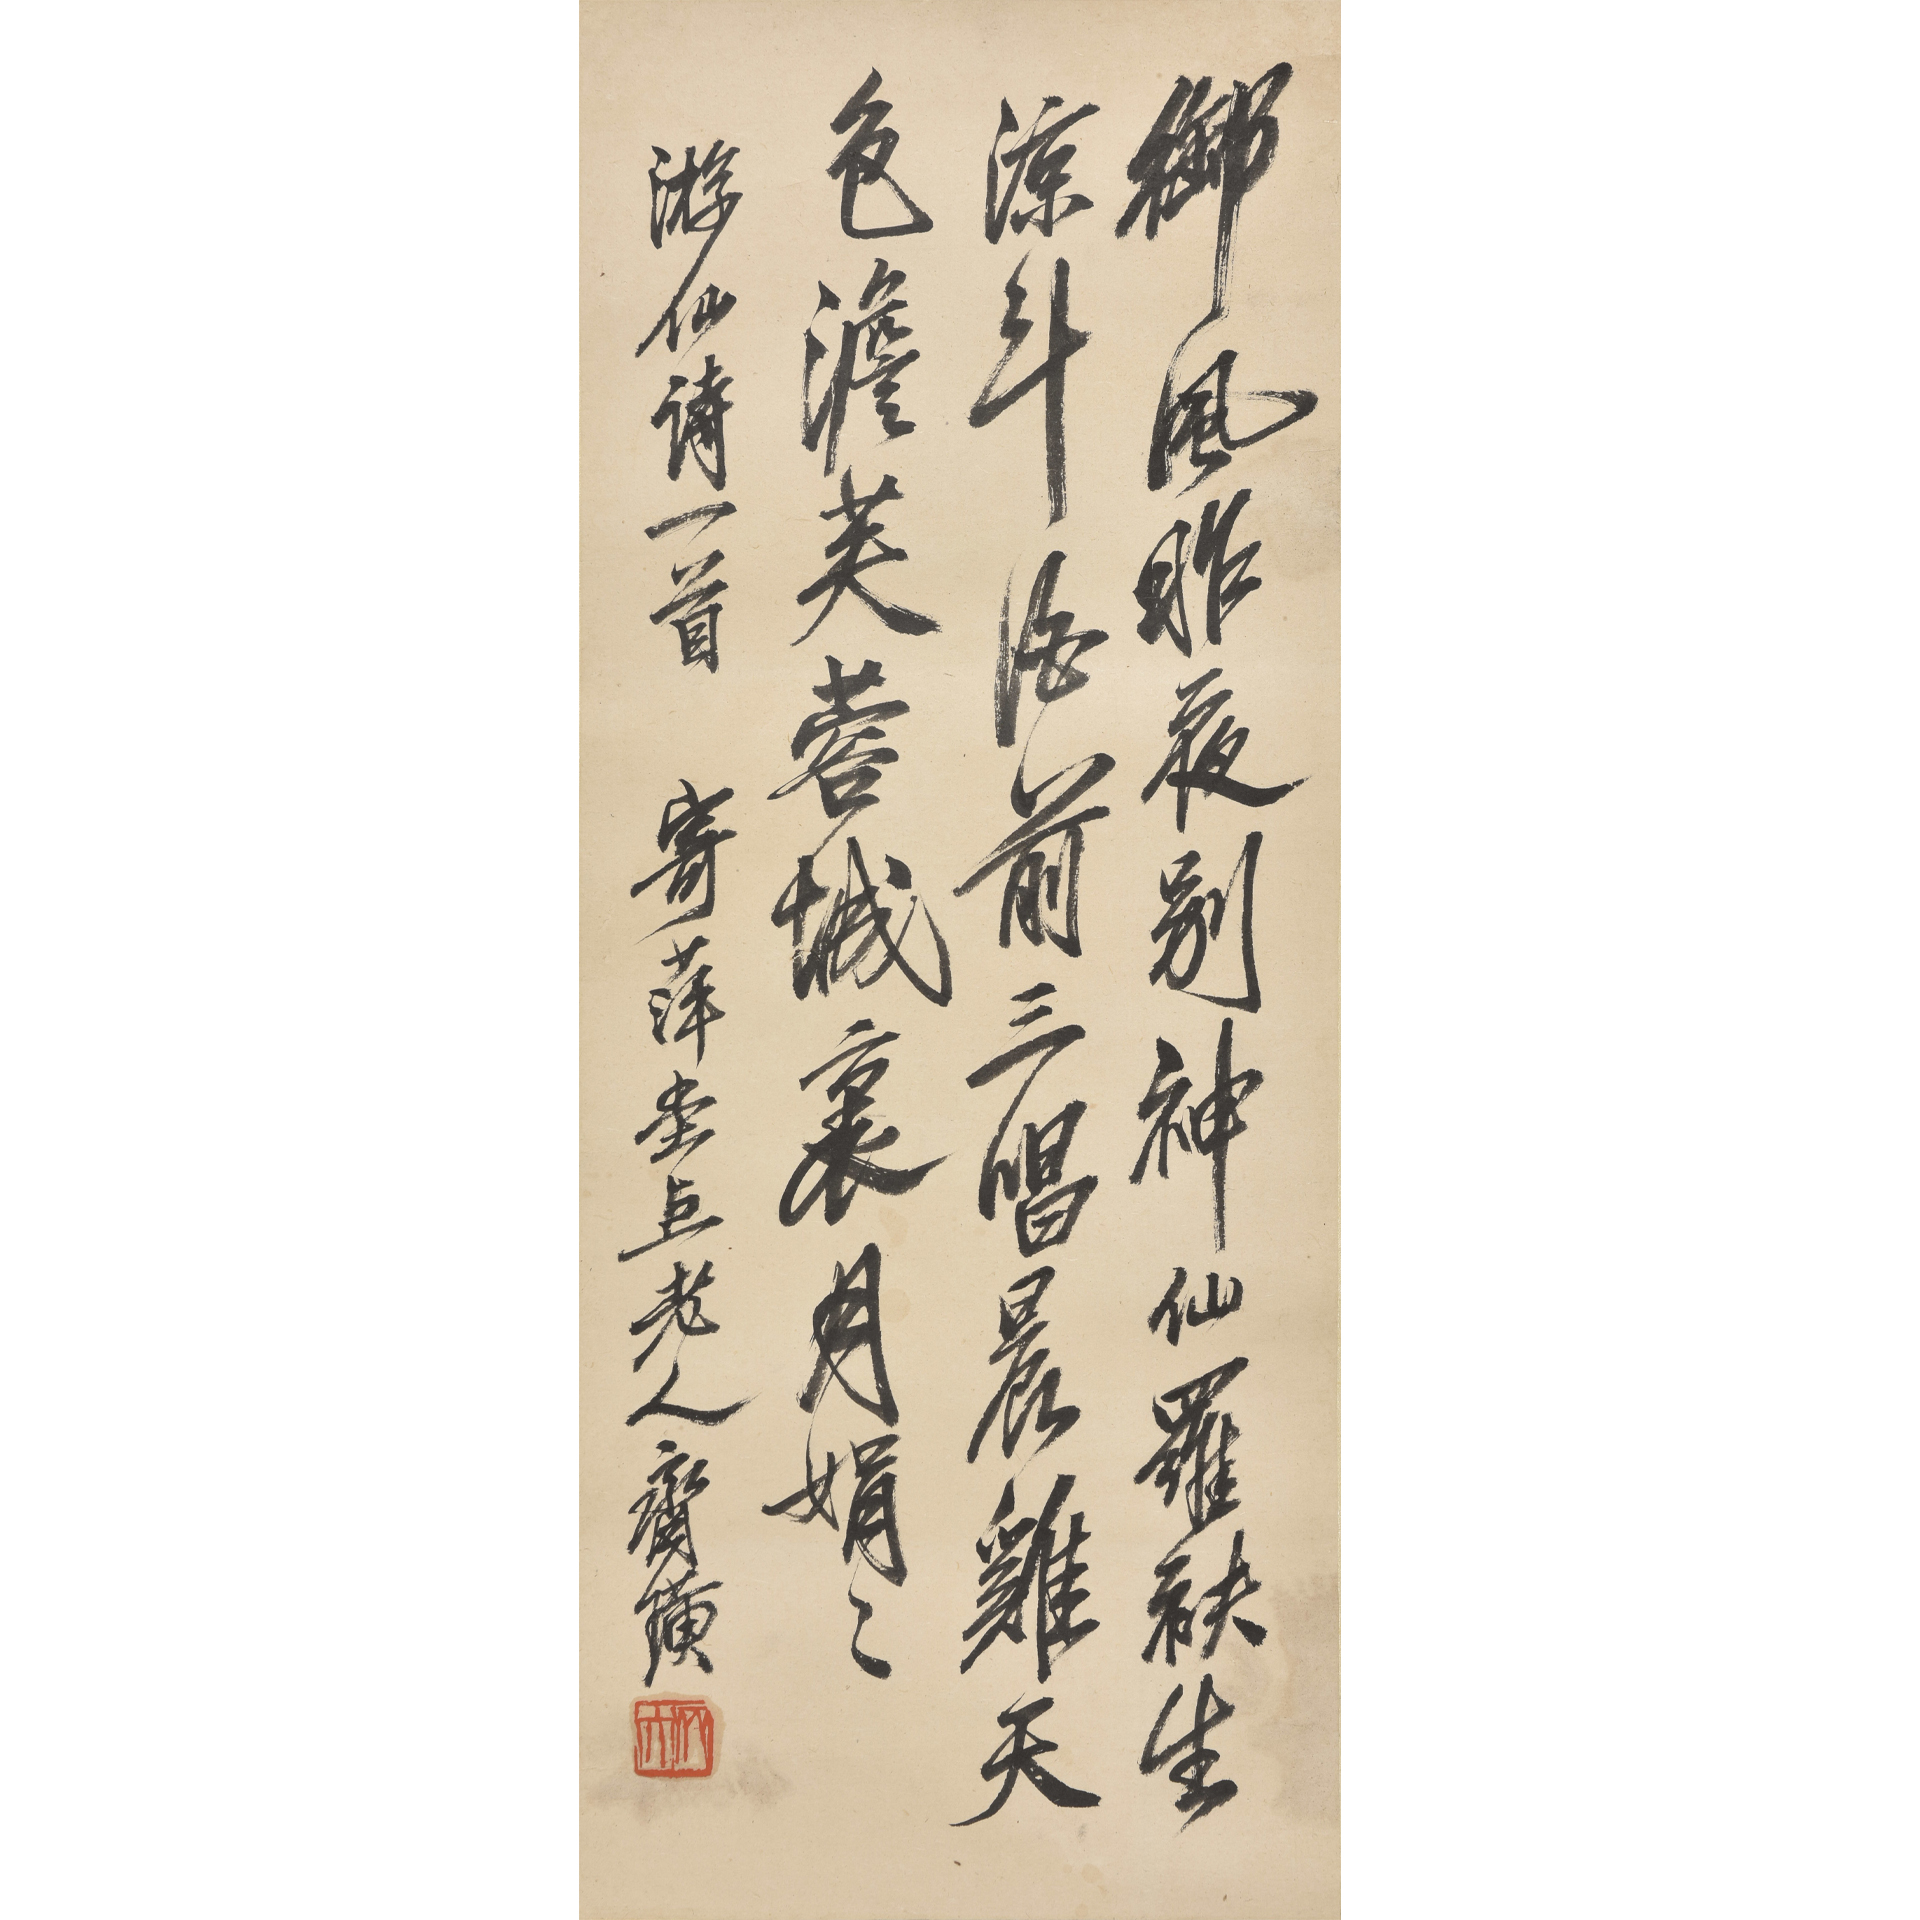 御風昨夜別神仙羅袂生
涼斗洛前三唱晨雞天
色澹芙蓉城裏月娟〻
游仙詩一首 寄萍堂上老人齊璜